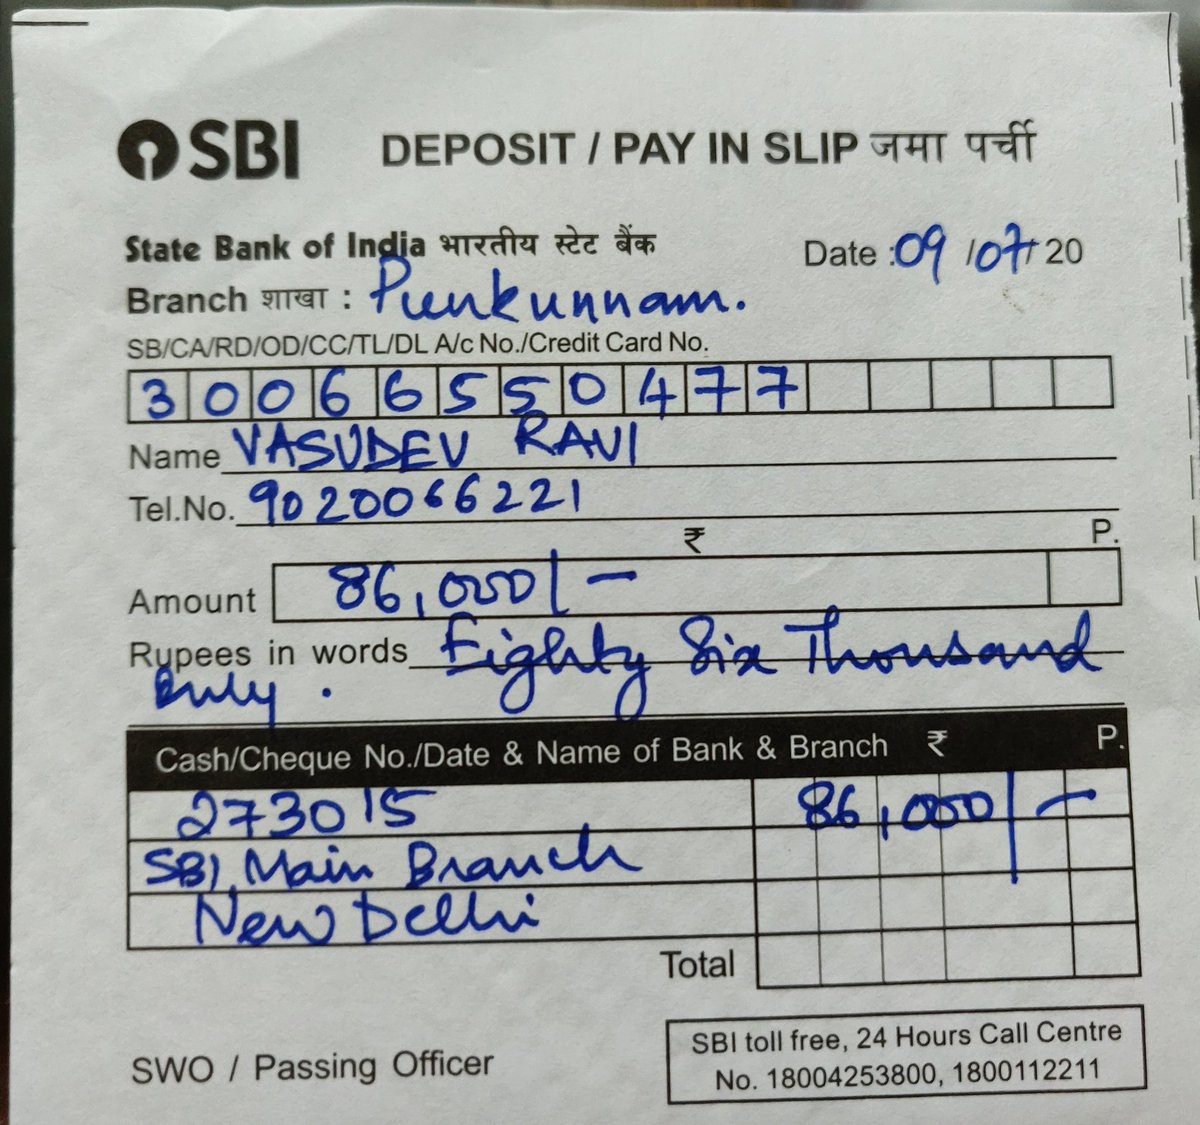 SBI DEPOSIT / PAY IN SLIP जमा पर्ची
State Bank of India भारतीय स्टेट बैंक Date : 09 / 07 / 20
Branch शाखा : Punkunnam.
SB/CA/RD/OD/CC/TL/DL A/c No./Credit Card No.
3 0 0 6 6 5 5 0 4 7 7
Name VASUDEV RAVI
Tel.No. 9020066221
₹ P.
Amount 86,000/-
Rupees in words Eighty Six Thousand
Only.
Cash/Cheque No./Date & Name of Bank & Branch ₹ P.
273015 86,000/-
SBI, Main Branch
New Delhi
Total
SWO / Passing Officer
SBI toll free, 24 Hours Call Centre
No. 18004253800, 1800112211